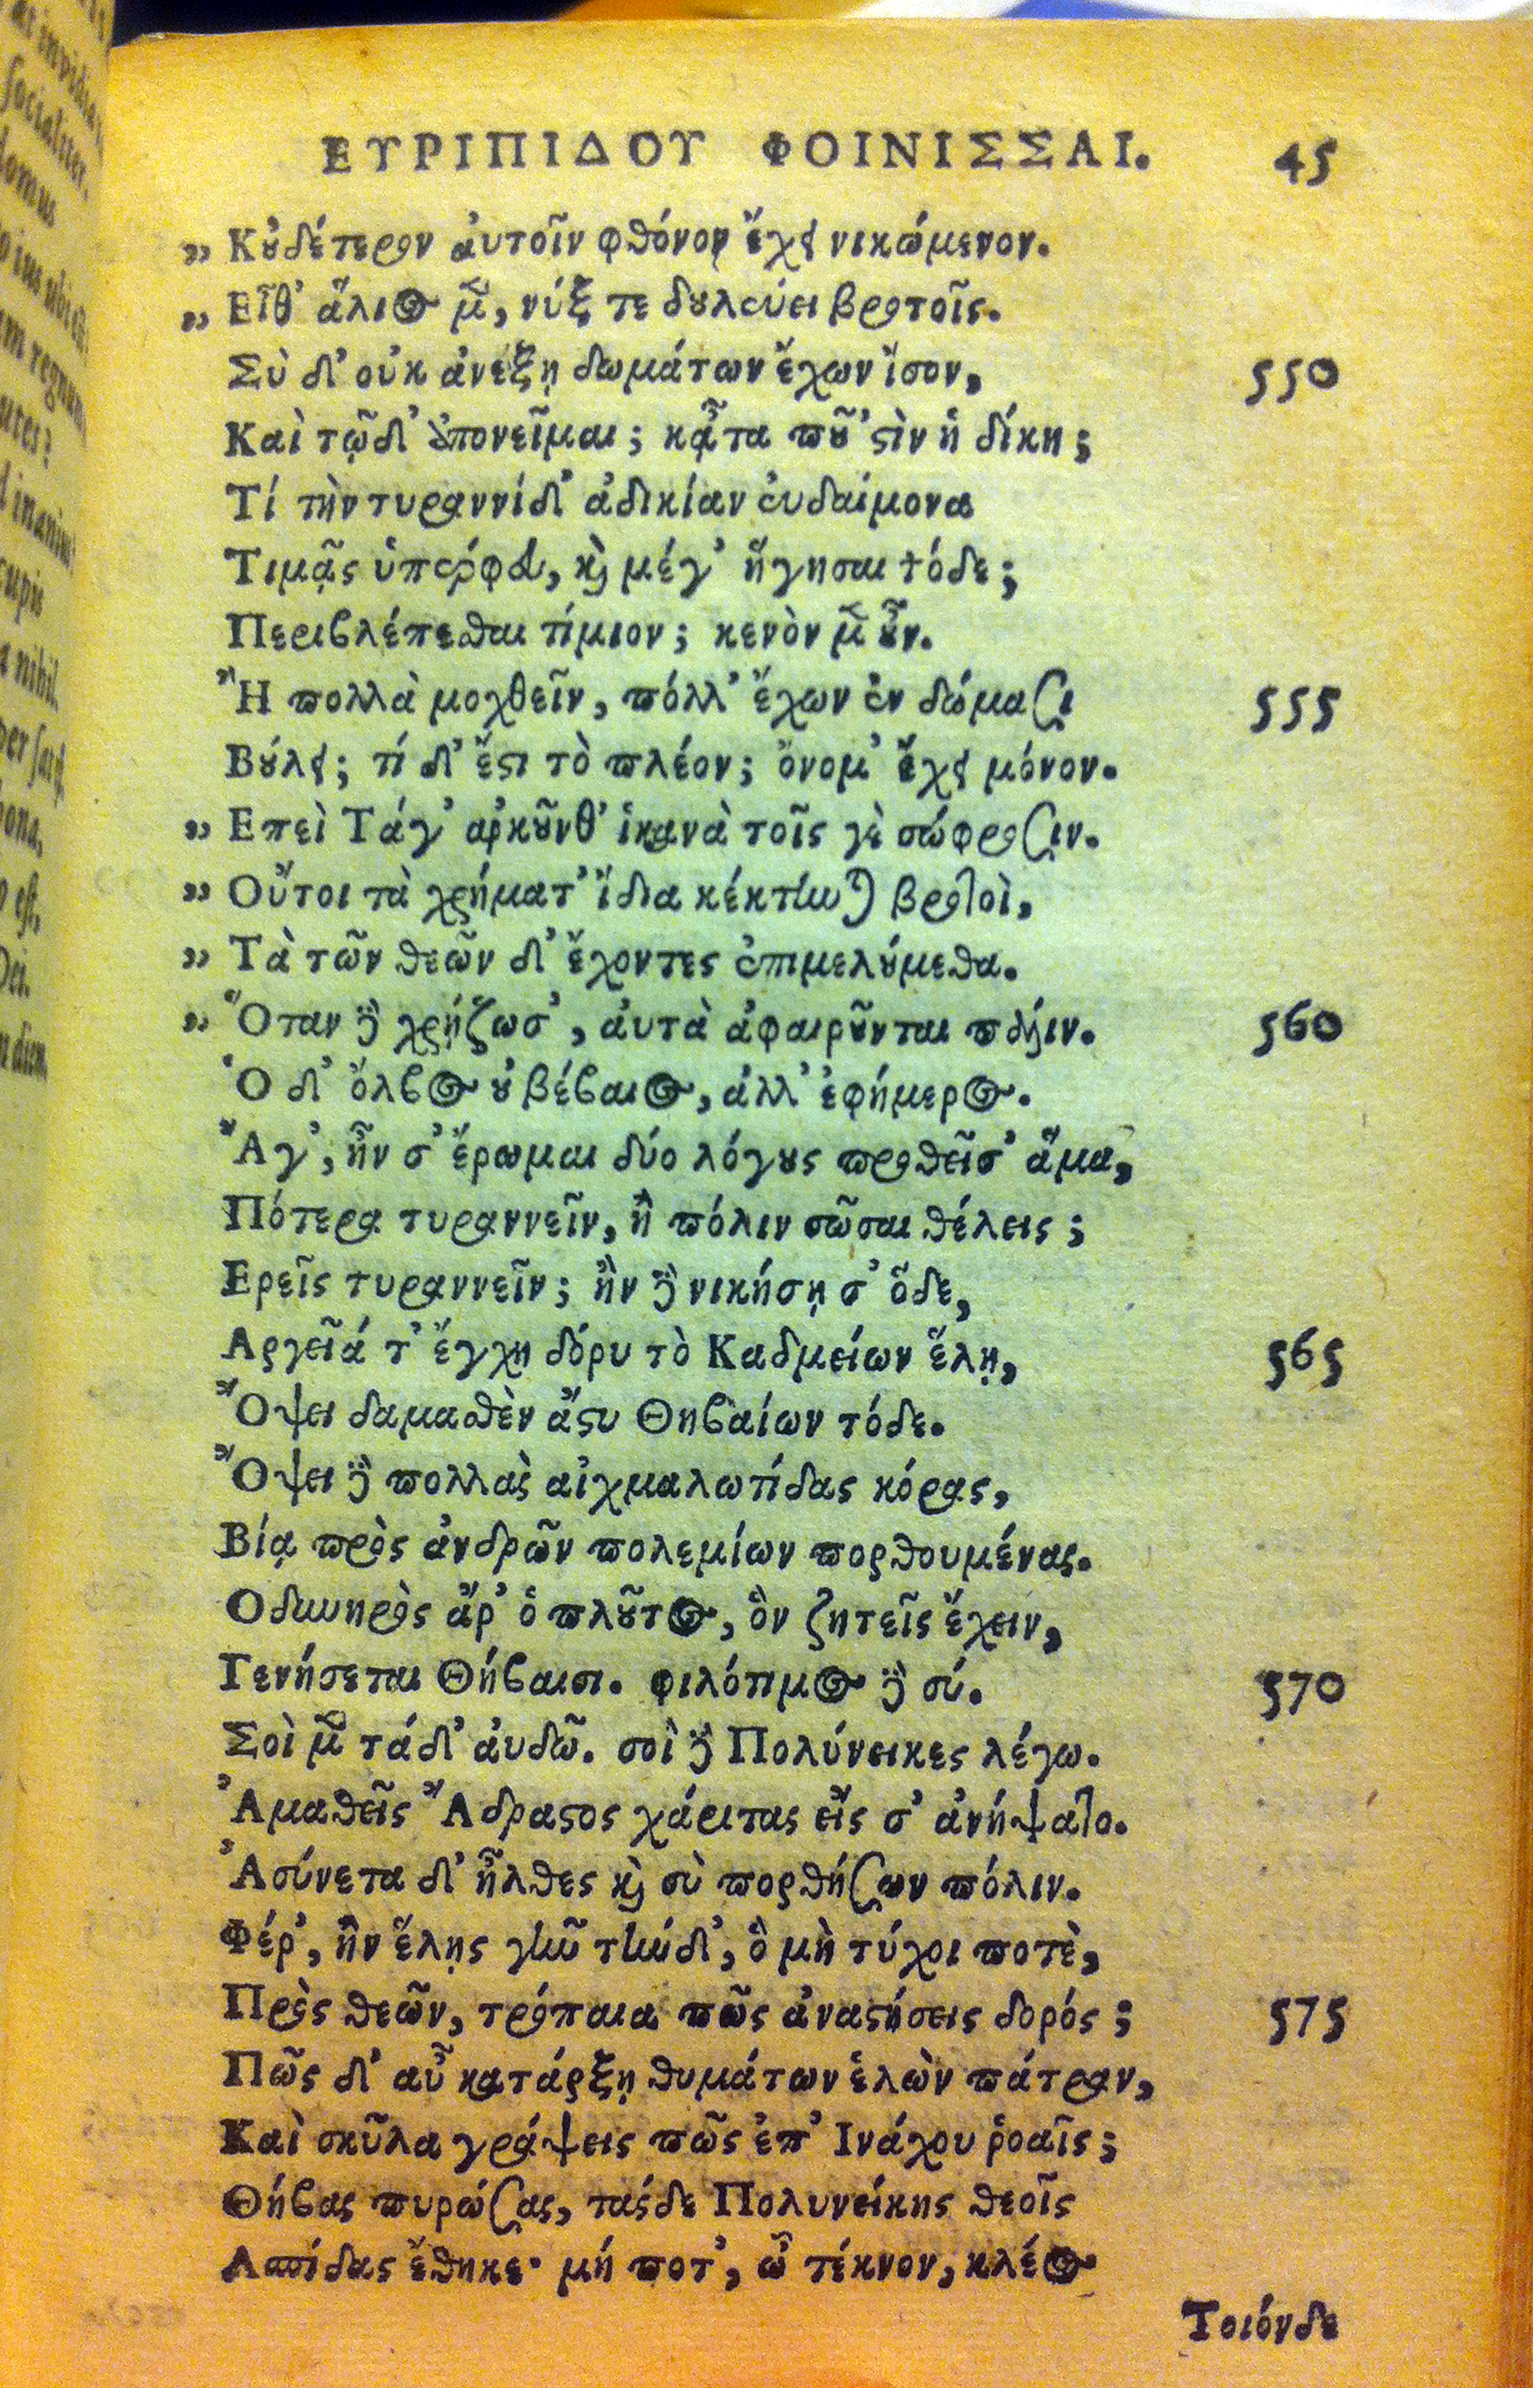 ΕΥΡΙΠΙΔΟΥ ΦΟΙΝΙΣΣΑΙ. 45
„ Κȣ̓δέτερον ἀυτοῖν φθόνον ἔχει νικώμενον.
„ Εἶθ' ἅλιος μ̃, νύξ τε δȣλεύει βροτοῖς.
Σὺ δ' οὐκ ἀνέξῃ δωμάτων ἔχων ἴσον, 550
Καὶ τῷδ' ἀπονεῖμαι; κᾆτα πȣ̃ 'ϛὶν ἡ δίκη;
Τί τὴν τυραννίδ' ἀδικίαν ἐυδαίμονα
Τιμᾷς ὑπέρφευ, ϗ̀ μέγ' ἥγησαι τόδε;
Περιβλέπεσθαι τίμιον; κενὸν μ̃ ȣ̓͂ν.
Ἢ πολλὰ μοχθεῖν, πόλλ' ἔχων ἐν δώμασι 555
Βȣ́λει; τί δ' ἔϛι τὸ πλέον; ὄνομ' ἔχει μόνον.
„ Επεὶ Τάγ' ἀρκȣ̃νθ' ἱκανὰ τοῖς γὲ σώφροσιν.
„ Οὔτοι τὰ χρήματ' ἴδια κέκτηνται βροτοὶ,
„ Τὰ τῶν θεῶν δ' ἔχοντες ἐπιμελȣ́μεθα.
„ Ὅταν δὲ χρῄζωσ', ἀυτὰ ἀφαιρȣ̃νται πάλιν. 560
Ὁ δ' ὄλβος ȣ̓ βέβαιος, ἀλλ' ἐφήμερος.
Ἄγ', ἢν σ' ἔρωμαι δύο λόγȣς προθεῖσ' ἅμα,
Πότερα τυραννεῖν, ἢ πόλιν σῶσαι θέλεις;
Ερεῖς τυραννεῖν; ἢν δὲ νικήσῃ σ' ὅδε,
Αργεῖά τ' ἔγχη δόρυ τὸ Καδμείων ἕλῃ, 565
Ὄψει δαμασθὲν ἄϛυ Θηβαίων τόδε.
Ὄψει δὲ πολλὰς αἰχμαλωτίδας κόρας,
Βίᾳ πρὸς ἀνδρῶν πολεμίων πορθουμένας.
Οδυνηρὸς ἄρ' ὁ πλȣ̃τος, ὃν ζητεῖς ἔχειν,
Γενήσεται Θήβαισι. φιλότιμος δὲ σύ. 570
Σοὶ μ̃ τάδ' ἀυδῶ. σοὶ δὲ Πολύνεικες λέγω.
Ἀμαθεῖς Ἄδραϛος χάριτας εἴς σ' ἀνήψατο.
Ἀσύνετα δ' ἦλθες ϗ̀ σὺ πορθήσων πόλιν.
Φέρ', ἢν ἕλῃς γῆν τήνδ', ὃ μὴ τύχοι ποτὲ,
Πρὸς θεῶν, τρόπαια πῶς ἀναϛήσεις δορός; 575
Πῶς δ' αὖ κατάρξῃ θυμάτων ἑλὼν πάτραν,
Καὶ σκῦλα γράψεις πῶς ἐπ' Ινάχου ῥοαῖς;
Θήβας πυρώσας, τάςδε Πολυνείκης θεοῖς
Ασπίδας ἔθηκε· μή ποτ', ὦ τέκνον, κλέος
Τοιόνδε